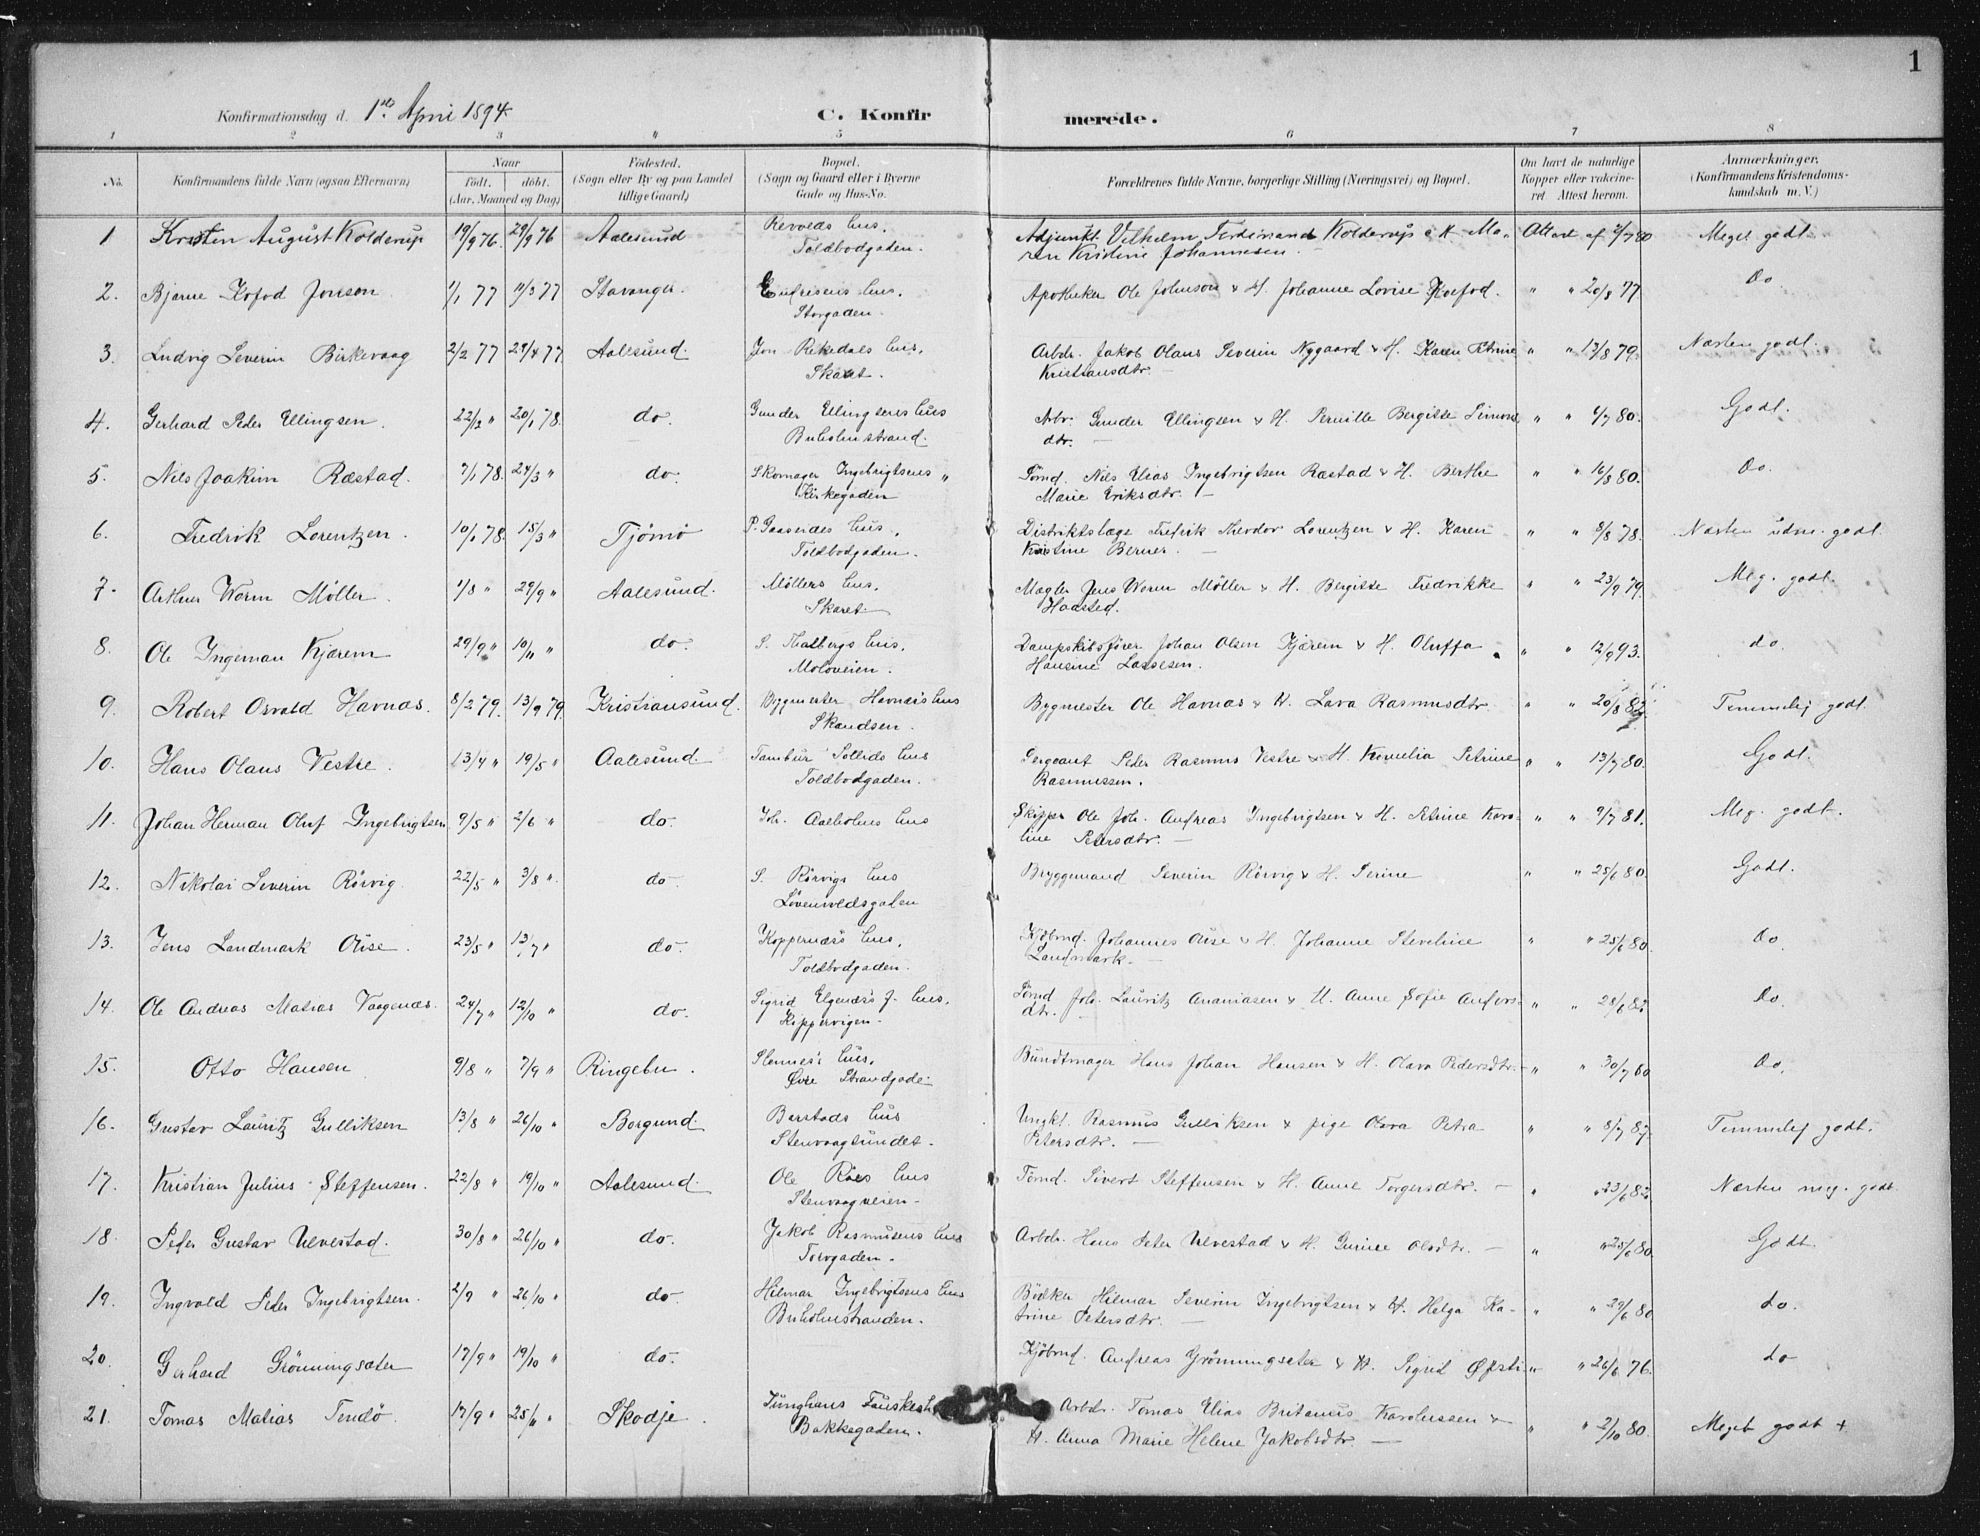 1
Konfirmationsdag d. 1ste April 1894
C. Konfirmerede.
1 2 3 " 5 6 7 8
No. Konfirmandens fulde Navn (ogsaa Efternavn) Naar født. døbt. (Aar, Maaned og Dag) Fødested. (Sogn eller By og paa Landet tillige Gaard) Bopæl. (Sogn og Gaard eller i Byerne Gade og Hus-No. Forældrenes fulde Navne, borgerlige Stilling (Næringsvei) og Bopæl. Om havt de naturlige Kopper eller vaccineret Attest herom. Anmærkninger. (Konfirmandens Kristendomskundskab m. V.)
1. Kristen August Kolderup 19/9 76. 29/9 76 Aalesund Revolds hus, Toldbodgaden. Adjunkt Vilhelm Ferdinand Kolderup & H. Maren Kristine Johannesen. Attest af 80 Meget godt.
2. Bjarne Kofod Jonson 1/1 77 11/3 77 Stavanger. hus, Storgaden. Apotheker Ole Johnson & H. Johanne Lovise Koefod. " " 20/8 77. Do
3. Ludvig Severin Birkevaag 2/2 77 29/4 77 Aalesund. Jon Rekdals hus, Skaret. Arbdr. Jakob Olaus Severin Nygaard & H. Karen Petrine Kristiansdtr. — " " 13/8 79. Næsten godt.
4. Gerhard Peder Ellingsen. 22/12 " 20/1 78. do. Gunder Ellingsens hus Buholmstrand. Arbr. Gunder Ellingsen & H. Pernille Bergitte Simonsdtr. — " " 6/7 80. Godt.
5. Nils Joakim Ræstad. 7/1 78. 24/3 " do. Skomager Ingebrigtsens " Kirkegaden Tømd. Nils Elias Ingebrigtsen Ræstad & H. Berthe Marie Eriksdtr. — " " 16/8 80. Do.
6. Fredrik Lorentzen. 10/1 78. 15/3 " Tjømø P. Gaasnæs hus, Toldbodgaden. Distriktslæge Frederik Theodor Lorentzen & H. Karen Kristine Berner. — " " 8/8 78. Næsten udm. godt.
7. Arthur Worm Møller. 1/8 " 29/9 " Aalesund. Møllers hus, Skaret. Mægler Jens Worm Møller & H. Bergitte Fredrikke Haasted. " " 23/9 79. Meg. godt.
8. Ole Ingeman Kjærem 29/9 " 10/11 " do. S. Thalbergs hus, Moloveien. Dampskibsfører Johan Olsen Kjærem & H. Oluffa Hansine Lassesen. " " 12/9 93. do.
9. Robert Osvald Havnæs. 8/2 79. 13/9 79. Kristiansund. Bygmester Havnæs's hus Skandsen. Bygmester Ole Havnæs & H. Lava Rasmusdtr. " " 20/8 Temmelig godt.
10. Hans Olaus Vestre. 13/4 " 19/5 " Aalesund. Tambur Sollids hus Toldbodgaden. Sergeant Peder Rasmus Vestre & H. Kornelia Petrine Rasmussen. " " 13/7 80. Godt.
11. Johan Herman Oluf Ingebrigtsen 9/5 " 2/6 " do. Joh. Aalholms hus Skipper Ole Joh. Andreas Ingebrigtsen & H. Petrine Karoline Petersdtr. — " " 9/7 81. Meg. godt.
12. Nikolai Severin Rørvig. 22/5 " 3/8 " do. S. Rørvigs hus Løvenvoldsgaden Bryggemand Severin Rørvig & H. Serine " " 25/6 80. Godt.
13. Jens Landmark Aise. 23/5 " 13/7 " do. Koppernæs's hus, Toldbodgaden. Kjøbmd. Johannes Aise & H. Johanne Steveline Landmark. — " " 25/6 80. Do
14. Ole Andreas Matias Vaagenæs. 24/7 " 12/10 " do. Sigrid Elgenæs's hus, Kippervigen. Tømd Joh. Lauritz Ananiasen & H. Anne Sofie Andersdtr. — " " 28/6 Do.
15. Otto Hansen 9/8 " 7/9 " Ringebu. Slennes's hus, Øvre Strandgade. Bundtmager Hans Johan Hansen & H. Olava Pedersdtr. — " " 30/7 80 Do.
16. Gustav Lauritz Gulliksen 13/8 " 26/10 " Borgund. Barstads hus Stenvaagsundet. Ungkl. Rasmus Gulliksen & pige Olava Petra Petersdtr. — " " 8/7 87. Temmelig godt.
17. Kristian Julius Steffensen. 22/8 " 19/10 " Aalesund. Ole Røes hus Stenvaagveien. Tømd. Sivert Steffensen & H. Anne Torgersdtr. — " " 23/6 Næsten meg. godt.
18. Peder Gustav Ulvestad. 30/8 " 26/10 " do. Jakob Rasmusens hus Torvgaden. Arbdr. Hans Peter Ulvestad & H. Gurine Olsdtr. — " " 25/6 80. Godt.
19. Ingvald Peder Ingebrigtsen. 2/9 " 26/10 " do. Hilmar Ingebrigtsens hus Buholmstranden. Bødker Hilmar Severin Ingebrigtsen & H. Helga Katrine Petersdtr. — " " 29/6 80 do.
20. Gerhard Grønningsæter 17/9 " 19/10 " do. Kjøbmd. Andreas Grønningsæter & H. Sigrid Østi " " 26/6 76. do
21. Tomas Matias Tendø. 17/9 " 25/11 " Skodje. Junghans Fauskes h Bakkegaden. Arbdr. Tomas Elias Britanus Karolussen & H. Anna Marie Helene Jakobsdtr. — " " 2/10 80. Meget godt +